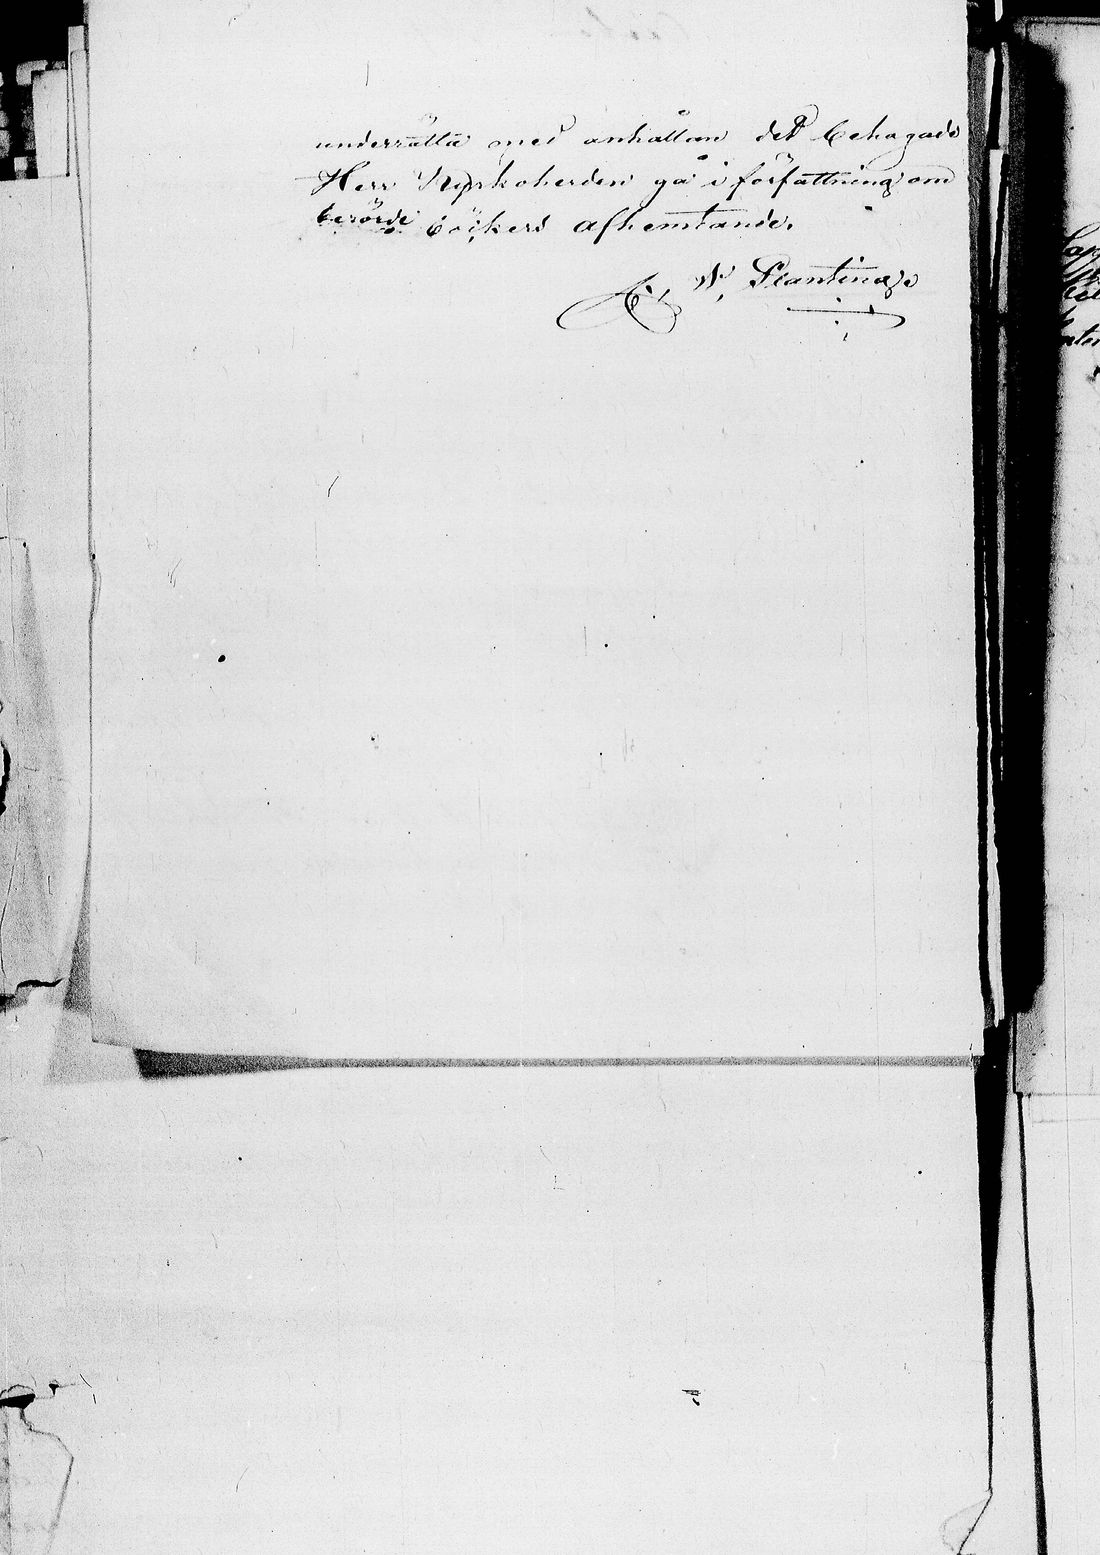 underrätta med anhållan det behagade
Herr Kyrkoherden gå i författning om
berörde böckers afhemtande.
C. W. Plantin